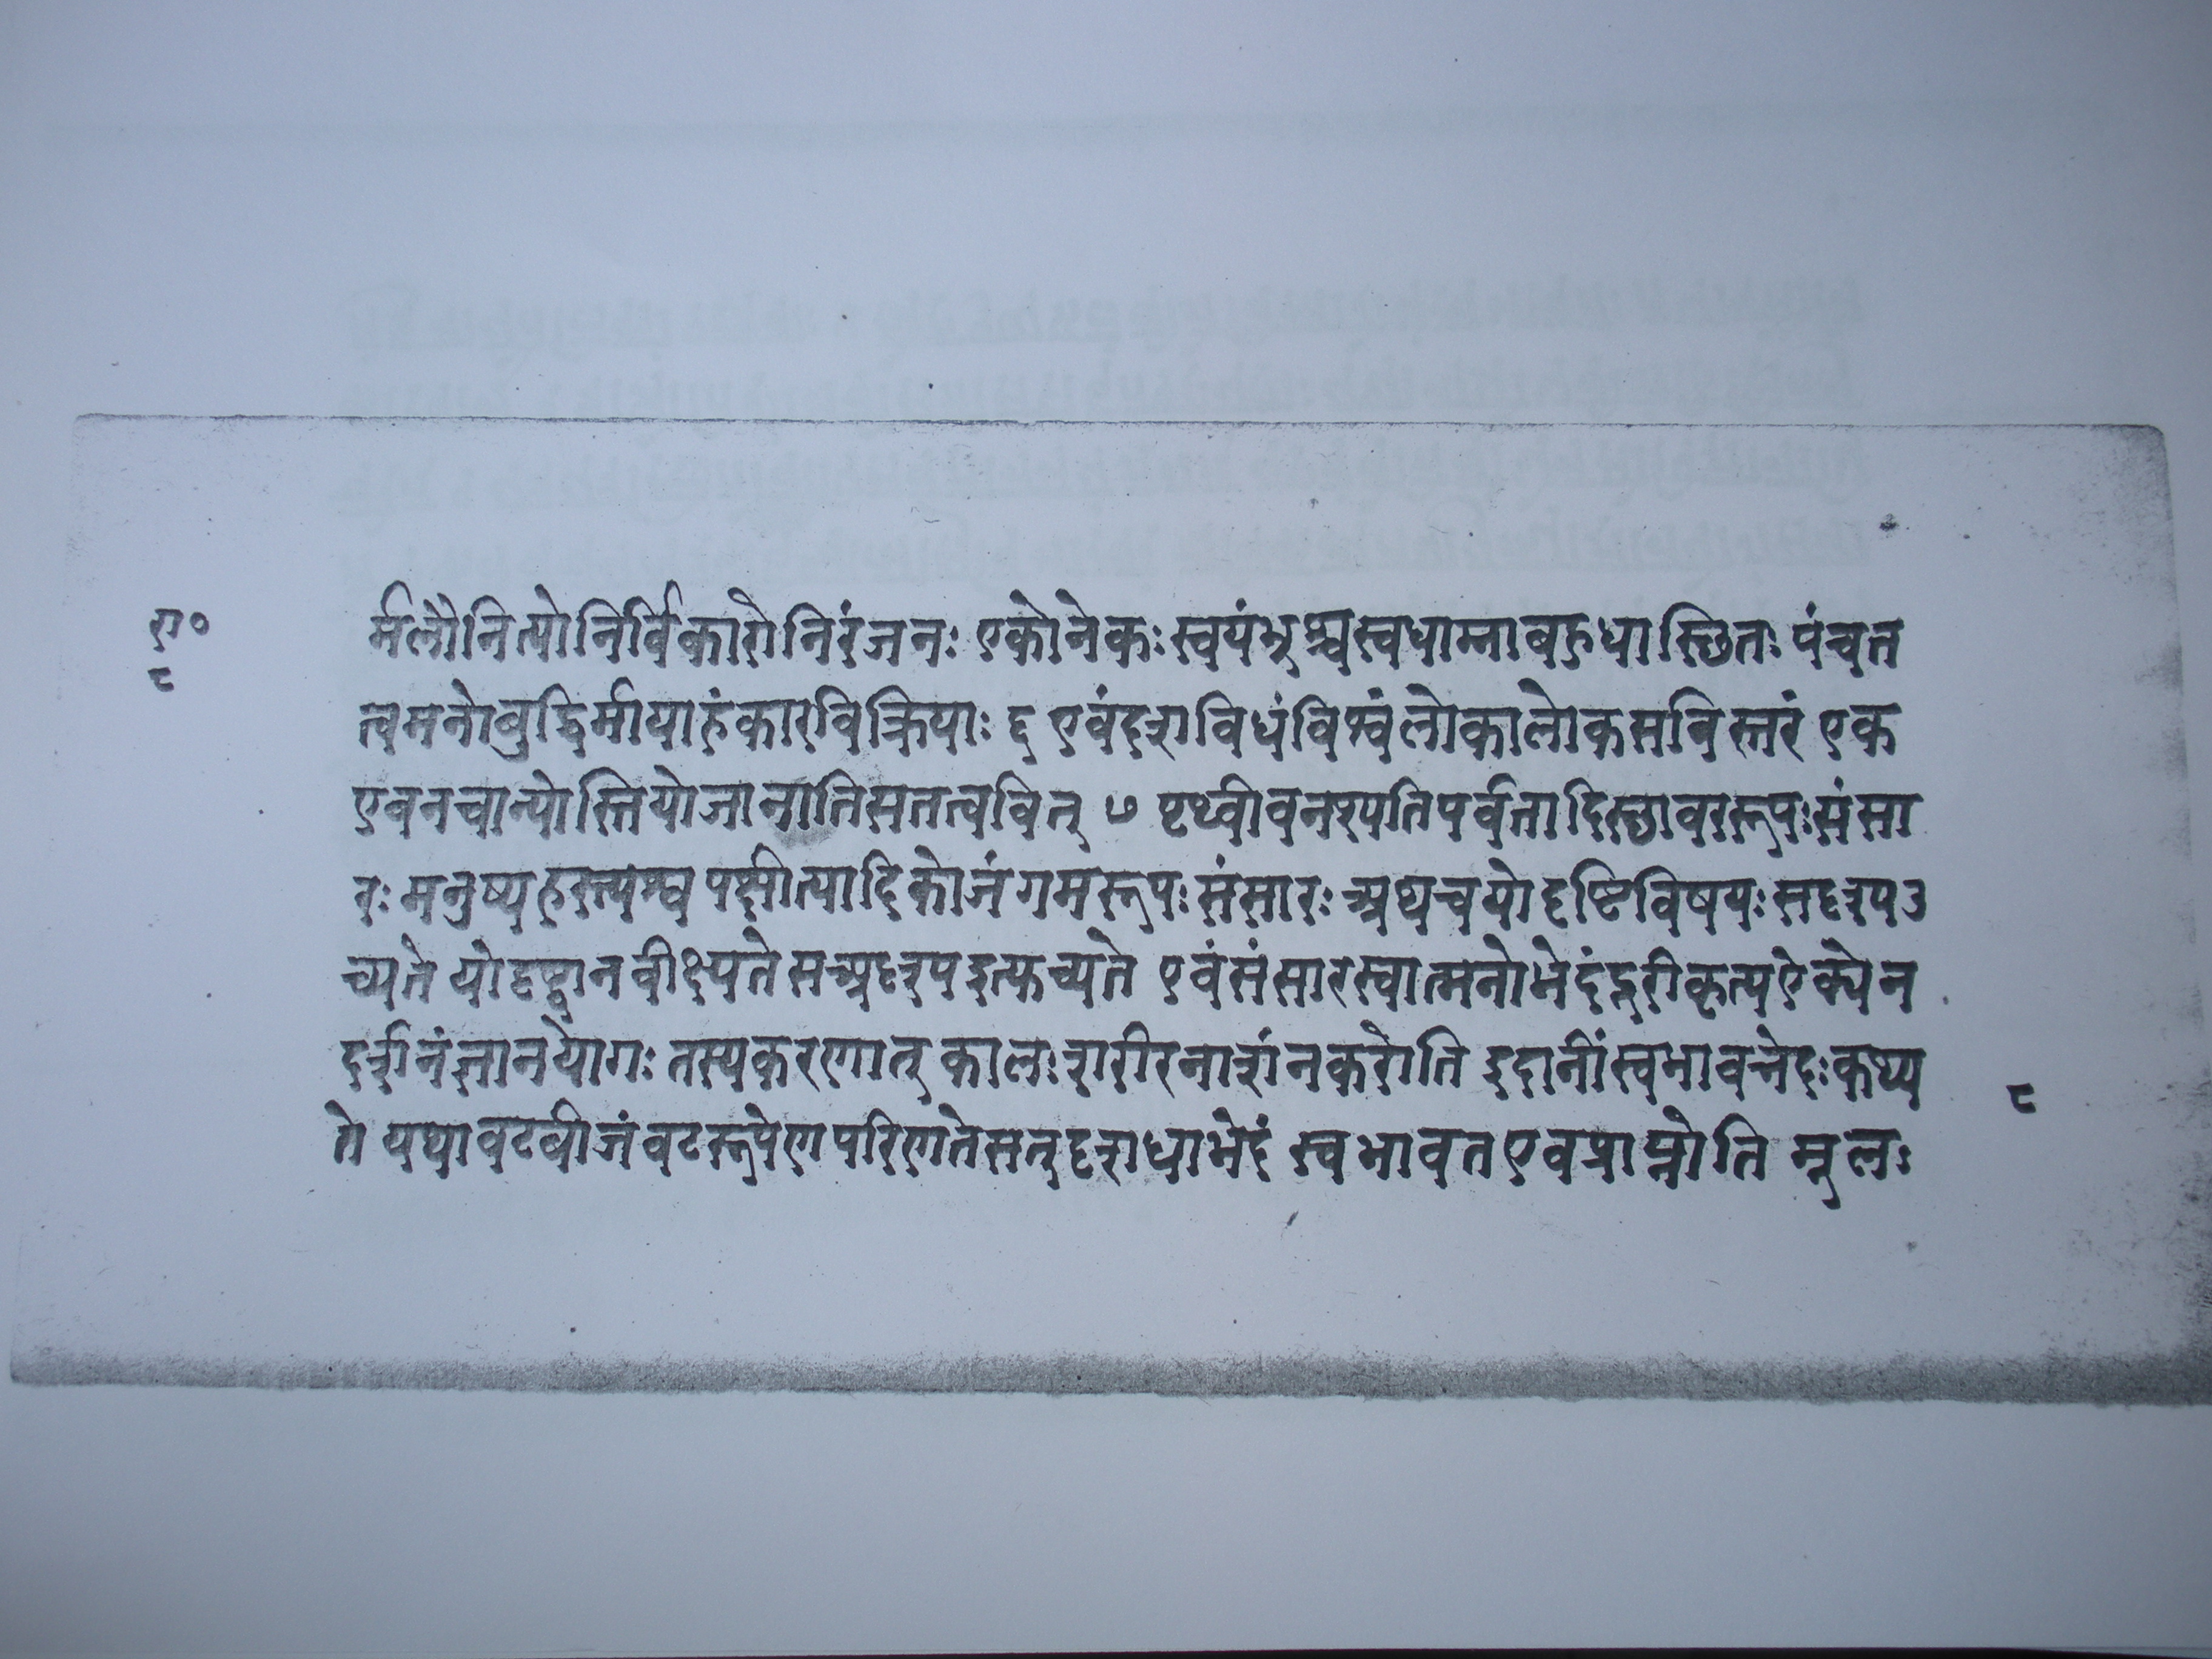 रा०
८
र्मलौनित्योनिर्विकारोनिरंजनः एकोनेकः स्वयंभूश्चस्वधाम्नाबहुधास्छितः पंचत
त्वमनोबुद्धिर्मायाहंकारविक्रियाः ६ एवंदशविधंविश्वंलोकालोकसविस्तरं एक
एवनचान्योस्तियोजानातिसतत्ववित् ७ पृथ्वीवनश्पतिपर्वतादिस्छावररूपःसंसा
रः मनुष्यहस्त्यश्वपक्षीत्यादिकोजंगमरूपः संसारः अथचयोदृष्टिविषयः सदृश्यउ
च्यते योदृष्ट्वानवीक्ष्यते सअदृश्यइत्युच्यते एवंसंसारस्वात्मनोभेदंदूरीकृत्यऐक्येन
दर्शनंज्ञानयोगः तस्यकरणात् कालःशरीरनाशंनकरोति इदानींस्वभावभेदःकथ्य
ते यथावटबीजंवटरूपेणपरिणतेसत्दशधाभेदं स्वभावतएवप्राप्नोति मूलः
८